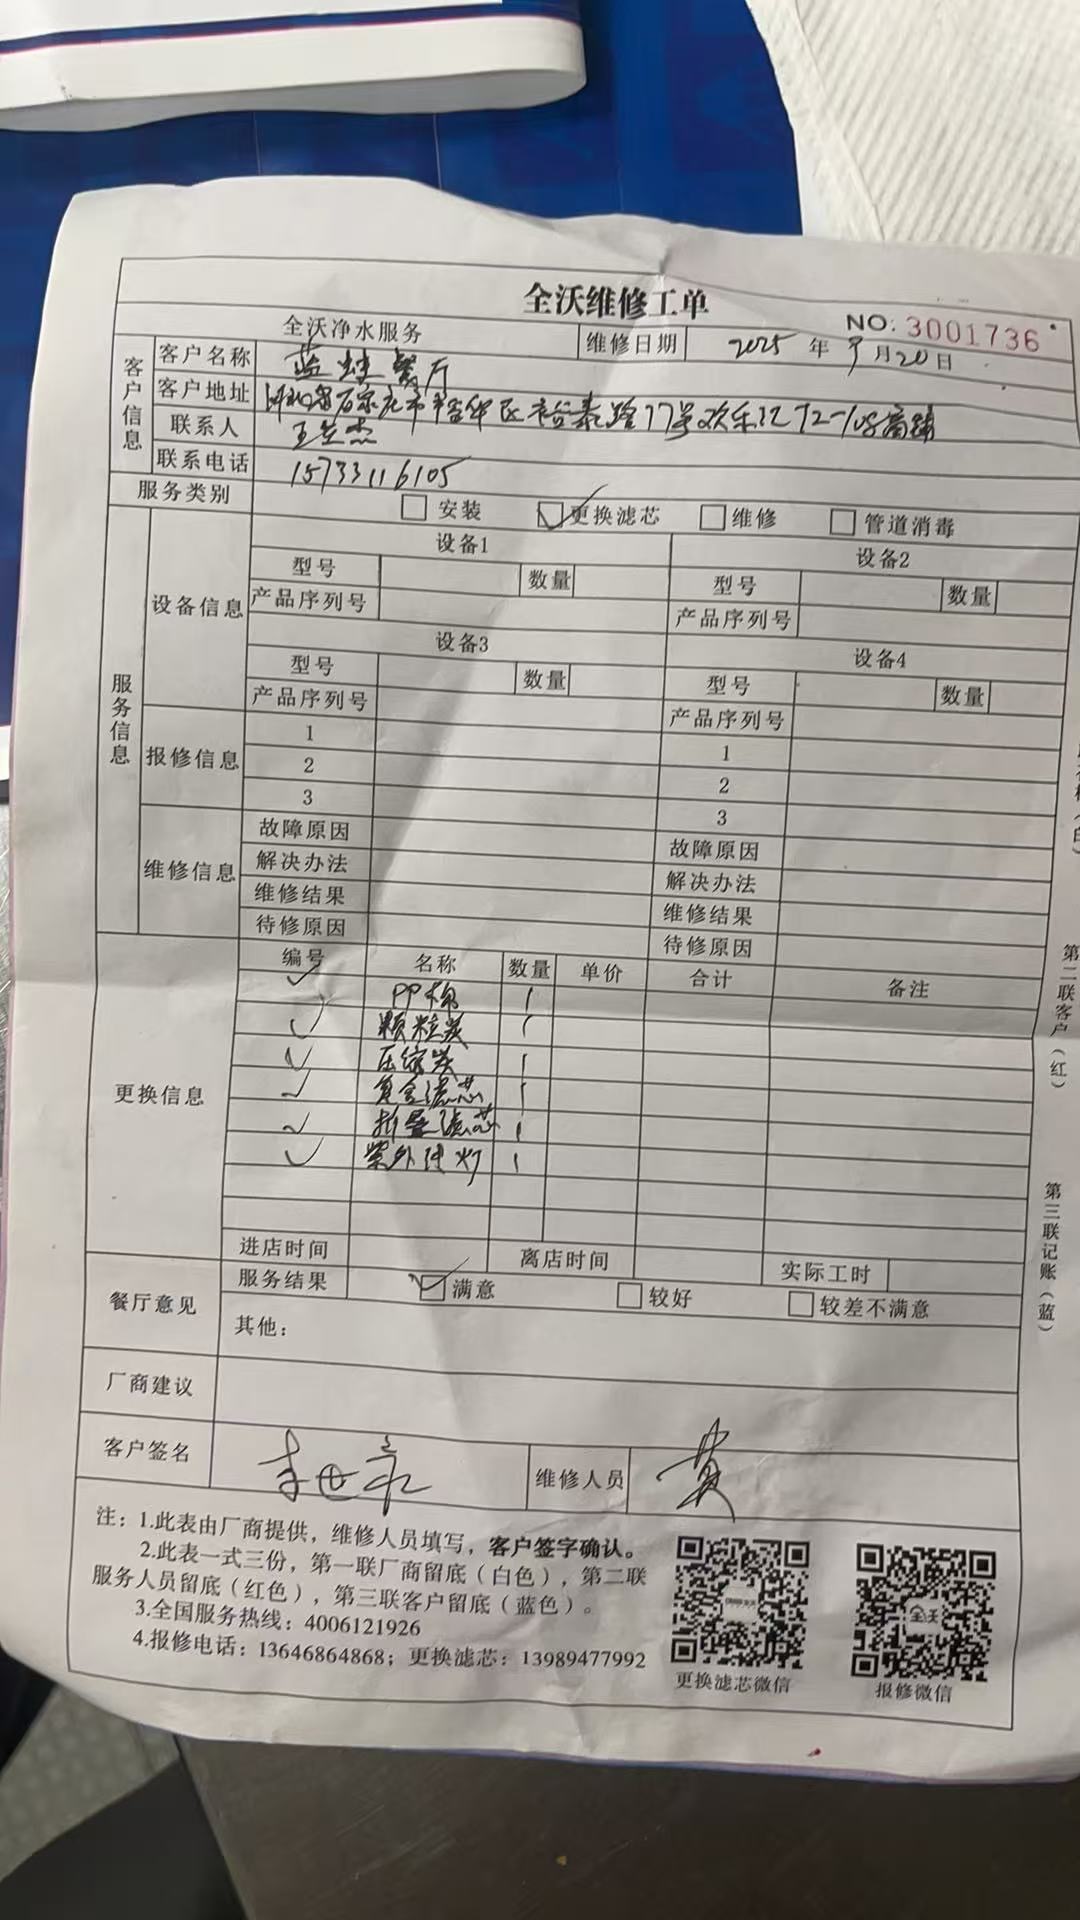 全沃维修工单
NO: 3001736
全沃净水服务 维修日期 2025 年 9 月 20 日
客户信息
客户名称 蓝蛙餐厅
客户地址 河北省石家庄市裕华区裕泰路17号欢乐汇 商铺
联系人 王 杰
联系电话 15733116105
服务类别 安装 更换滤芯 维修 管道消毒
服务信息
设备信息
设备1 设备2
型号 数量 型号 数量
产品序列号 产品序列号
设备3 设备4
型号 数量 型号 数量
产品序列号 产品序列号
报修信息
1 1
2 2
3 3
维修信息
故障原因 故障原因
解决办法 解决办法
维修结果 维修结果
待修原因 待修原因
更换信息
编号 名称 数量 单价 合计 备注
✓ PP棉 1
✓ 颗粒炭 1
✓ 压缩炭 1
✓ 复合滤芯 1
✓ 折叠滤芯 1
✓ 紫外线灯 1
进店时间 离店时间 实际工时
餐厅意见
服务结果 满意 较好 较差不满意
其他：
厂商建议
客户签名 维修人员 黄
注：1.此表由厂商提供，维修人员填写，客户签字确认。
2.此表一式三份，第一联厂商留底（白色），第二联
服务人员留底（红色），第三联客户留底（蓝色）。
3.全国服务热线：4006121926
4.报修电话：13646864868；更换滤芯：13989477992
更换滤芯微信 报修微信
全沃
第二联客户（红）
第三联记账（蓝）